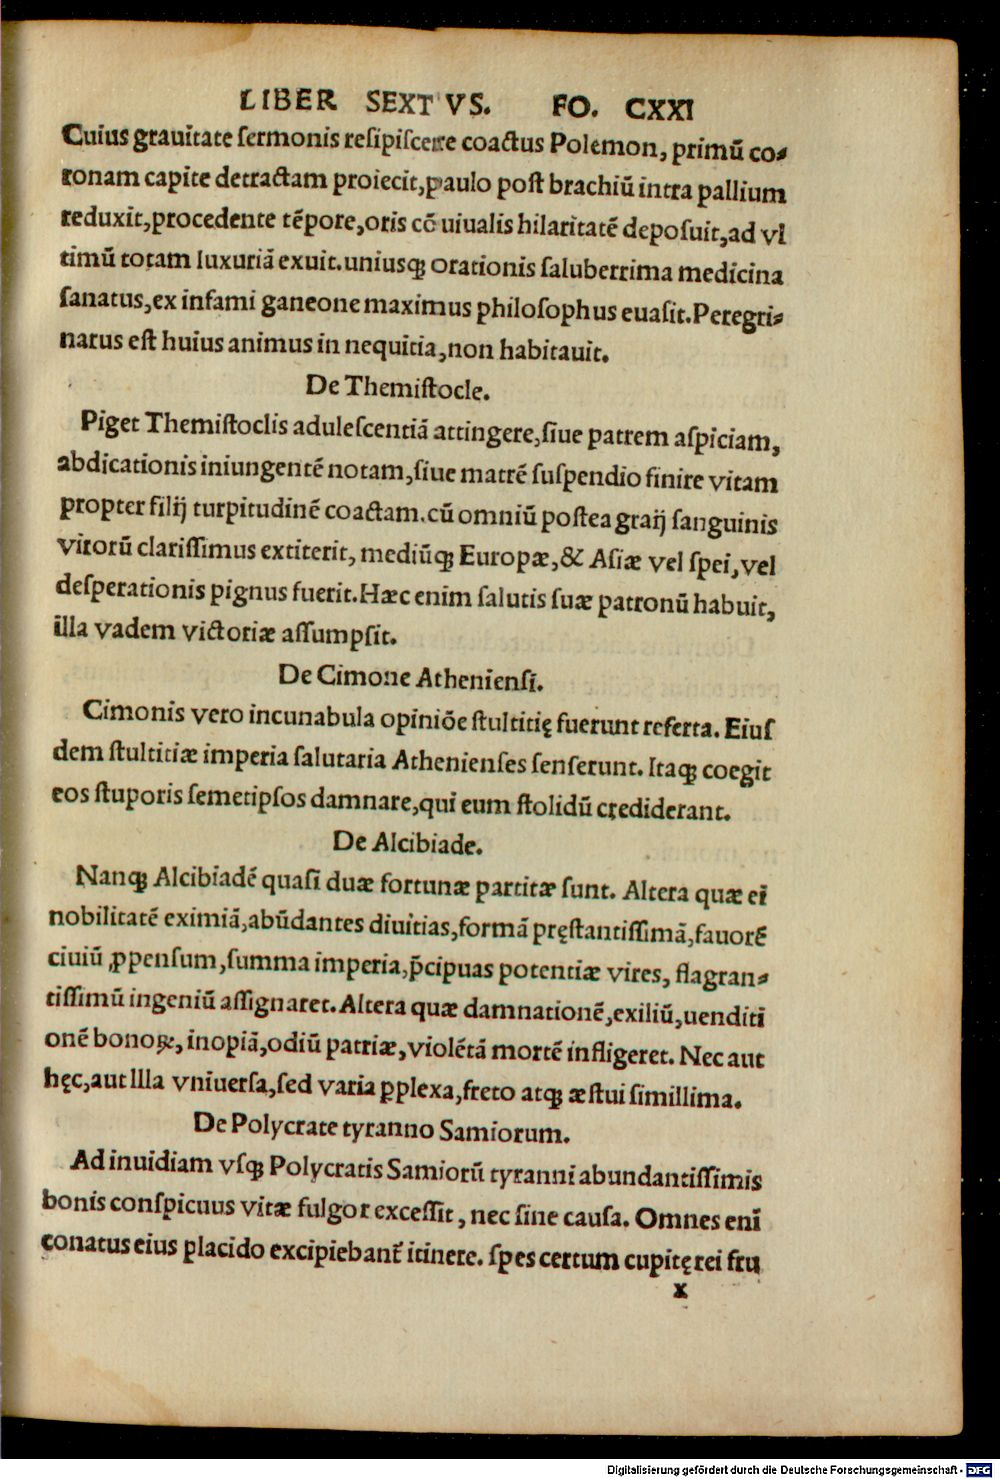 LIBER SEXTVS. FO. CXXI
Cuius grauitate sermonis resipiscere coactus Polemon, primū co⸗
ronam capite detractam proiecit,paulo post brachiū intra pallium
reduxit,procedente tēpore,oris cō uiualis hilaritatē deposuit,ad vl
timū totam luxuriā exuit.uniusqꝫ orationis saluberrima medicina
sanatus,ex infami ganeone maximus philosophus euasit.Peregri⸗
natus est huius animus in nequitia,non habitauit.
De Themistocle.
Piget Themistoclis adulescentiā attingere,siue patrem aspiciam,
abdicationis iniungentē notam,siue matrē suspendio finire vitam
propter filij turpitudinē coactam.cū omniū postea graij sanguinis
virorū clarissimus extiterit, mediūqꝫ Europæ,& Asiæ vel spei,vel
desperationis pignus fuerit.Hæc enim salutis suæ patronū habuit,
illa vadem victoriæ assumpsit.
De Cimone Atheniensi.
Cimonis vero incunabula opiniōe stultitię fuerunt referta. Eius
dem stultitiæ imperia salutaria Athenienses senserunt. Itaqꝫ coegit
eos stuporis semetipsos damnare,qui eum stolidū crediderant.
De Alcibiade.
Nanqꝫ Alcibiadē quasi duæ fortunæ partitæ sunt. Altera quæ ei
nobilitatē eximiā,abūdantes diuitias,formā pręstantissimā,fauorē
ciuiū ꝓpensum,summa imperia,p̄cipuas potentiæ vires, flagran⸗
tissimū ingeniū assignaret.Altera quæ damnationē,exiliū,uenditi
onē bonoꝝ, inopiā,odiū patriæ,violētā mortē infligeret. Nec aut
hęc,aut Illa vniuersa,sed varia ꝑplexa,freto atqꝫ æstui simillima.
De Polycrate tyranno Samiorum.
Ad inuidiam vsqꝫ Polycratis Samiorū tyranni abundantissimis
bonis conspicuus vitæ fulgor excessit, nec sine causa. Omnes enī
conatus eius placido excipiebant̃ itinere. spes certum cupitę rei fru
x
Digitalisierung gefördert durch die Deutsche Forschungsgemeinschaft - DFG